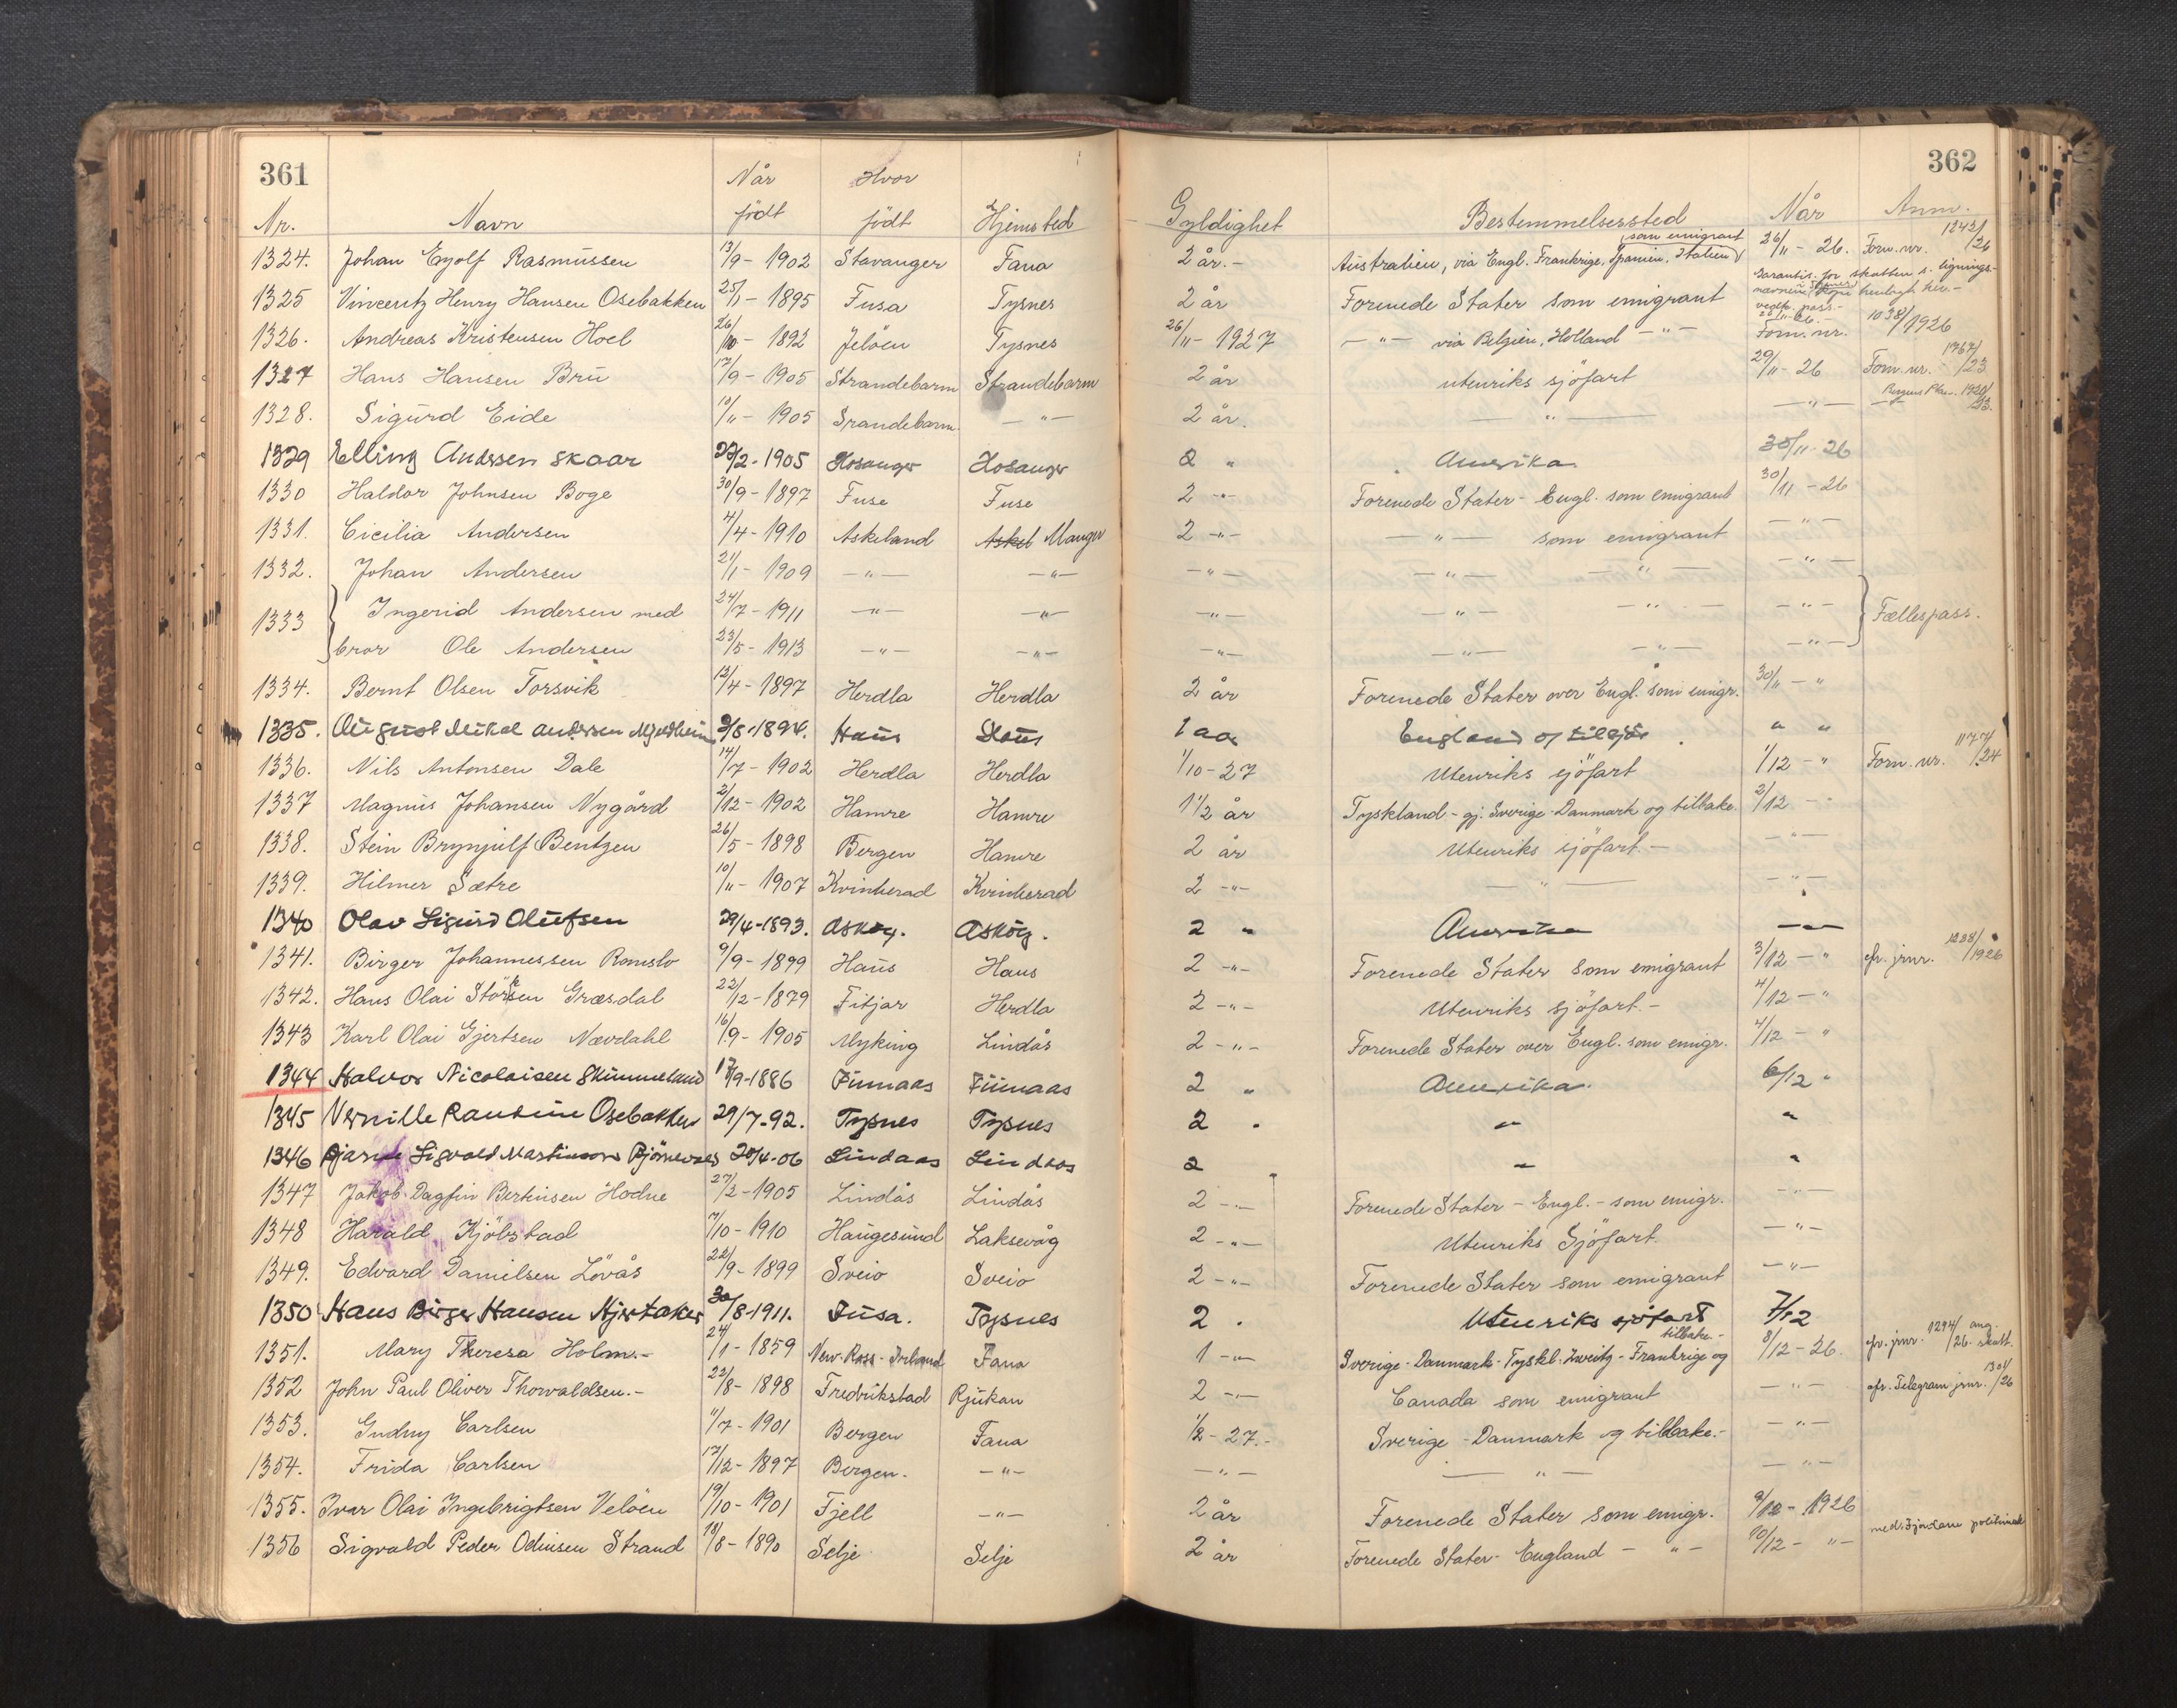 361 362
Når Hvor
Nr. Navn født født Hjemsted Gyldighet Bestemmelsessted Når Anm.
1324. Johan Eyolf Rasmussen 13/9 - 1902 Stavanger Fana 2 år.- Australien, via Engl. Frankrige, Spanien, Italien som emigrant 26/11 - 26. Forn. nr. 1242/26
1325 Vincentz Henry Hansen Osebakken 25/1 - 1895 Fusa Tysnes 2 år Forenede Stater som emigrant Garantis. for skatten s. lignings-
1326. Andreas Kristensen Hoel 26/10 - 1892 Jeløen Tysnes 26/11 - 1927 - " - via Belgien, Holland - " - 26/11-26. Forn. nr. 1038/1926
1327 Hans Hansen Bru 17/9 - 1905 Strandebarm Strandebarm 2 år utenriks sjøfart 29/11 - 26 Forn. nr. 1767/23
1328. Sigurd Eide 10/11 - 1905 Srandebarm. - " - 2 år. - " - - " -
1329 Elling Andersen Skaar 23/2 - 1905 Hosanger Hosanger 2 " Amerika 30/11-26
1330 Haldor Johnsen Boge 30/9 - 1897 Fuse Fuse 2 - " - Forenede Stater - Engl. som emigrant 30/11 - 26
1331. Cicilia Andersen 4/4 - 1910 Askeland Askel Manger 2 - " - - " - som emigrant - " -
1332. Johan Andersen 21/1 - 1909 - " - - " - - " - - " - - " - - " -
1333 Ingerid Andersen med 24/7 - 1911 - " - - " - - " - - " - - " - - " - Fællespass.
bror Ole Andersen 23/5 - 1913 - " - - " - - " - - " - - " - - " -
1334. Bernt Olsen Torsvik 12/4 - 1897 Herdla Herdla 2 år Forenede Stater over Engl. som emigr. 30/11 - "
1335. August Mikal Andersen Mjeldheim 9/8 - 1894. Haus Haus 1 aar England og tilbage " "
1336. Nils Antonsen Dale 14/7 - 1902 Herdla Herdla 1/10 - 27 Utenriks sjøfart 1/12 - " Forn. nr. 1177/24
1337 Magnus Johansen Nygård 2/12 - 1902 Hamre Hamre 1 1/2 år Tyskland - gj. Sverige - Danmark og tilbake 2/12 - "
1338. Stein Brynjulf Bentzen 26/5 - 1898 Bergen Hamre 2 år Utenriks sjøfart. - - " -
1339. Hilmer Sætre 10/11 - 1907 Kvinherad Kvinherad 2 - " - - " - - " -
1340 Olav Sigurd Olufsen 29/4-1893. Askøy. Askøy. 2 " Amerika - " -
1341. Birger Johannessen Romslo 9/9 - 1899 Haus Haus 2 - " - Forenede Stater som emigrant 3/12 - " cfr. jrnr. 1288/1926
1342. Hans Olai Størksen Græsdal 22/2 - 1879 Fitjar Herdla 2 - " - Utenriks sjøfart. - 4/12 - "
1343 Karl Olai Gjertsen Nævdahl 16/9 - 1905 Myking Lindås 2 - " - Forenede Stater over Engl. som emigr. 4/12 - "
1344 Halvor Nicolaisen Skimmeland 17/9-1886 Finnaas Finnaas 2 " Amerika. 6/12 "
1345 Pernille Rantine Osebakken 29/7-92. Tysnes Tysnes 2 " " "
1346 Bjarne Sigvald Martinsen Bjørnevaas 20/4-06 Lindaas Lindaas 2 " "
1347 Jakob Dagfin Bertinsen Hodne 27/2 - 1905 Lindås Lindås 2 - " - Forenede Stater - Engl. - som emigr. - " -
1348 Harald Kjøbstad 7/10 - 1910 Haugesund Laksevåg 2 - " - Utenriks Sjøfart. - " -
1349. Edvard Danielsen Løvås 22/9 - 1899 Sveio Sveio 2 - " - Forenede Stater som emigrant - " -
1350 Hans Birger Hansen Hjertaker 30/8-1911. Fusa. Tysnes 2 . Utenriks sjøfart 7/12
1351. Mary Theresa Holm.- 24/1 - 1859 New-Ross - Irland Fana 1 - " - Sverige - Danmark - Tyskl. - Zweitz - Frankrige og tilbake.- 8/12 - 26. cfr. jrnr. 1294/26 ang. skatt.
1352 John Paul Oliver Thorvaldsen.- 22/8 - 1898 Fredrikstad Rjukan 2 - " - Canada som emigrant - " - cfr. Telegram jrnr. 1304/26
1353. Gudny Carlsen 11/7 - 1901 Bergen Fana 1/2 - 27.- Sverige - Danmark og tilbake.- - " -
1354. Frida Carlsen 17/12 - 1897 Bergen. - " - - " - - " - - " -
1355. Ivar Olai Ingebrigtsen Veløen 19/10 - 1901 Fjell - " - 2 år Forenede Stater som emigr. 9/12 - 1926
1356 Sigvald Peder Odinsen Strand 18/8 - 1890 Selje Selje 2 år Forenede Stater - England - " - 10/12 - " -